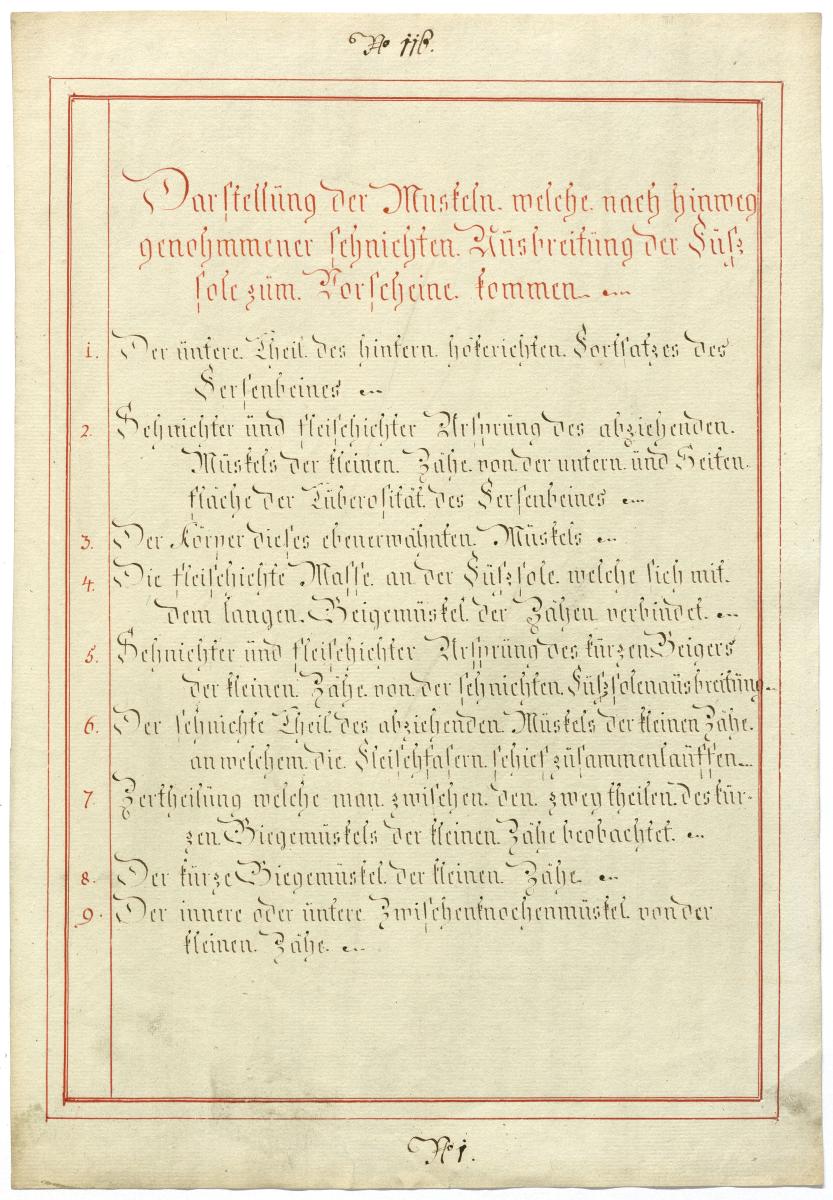 No 116.
Darstellüng der Muskeln. welche. nach hinweg
genohmmener sehnichten. Aüsbreitüng der Füsz
sole züm. Vorscheine. kommen
1. Der üntere. Theil. des hintern. hökerichten. Fortsatzes des
Fersenbeines
2. Sehnichter ünd fleischichter Ursprüng des abziehenden.
Müskels der kleinen. Zähe. von der untern. ünd Seiten.
fläche der Tüberosität. des Fersenbeines
3. Der Körper dieses ebenerwähnten. Müskels
4. Die fleischichte Masse. an der Füszsole. welche sich mit.
dem langen. Beigemüskel. der Zähen verbindet.
5. Sehnichter ünd fleischichter Ursprüng des kürzen Beigers
der kleinen. Zähe. von der sehnichten. Füszsolenaüsbreitüng
6. Der sehnichte Theil. des abziehenden. Müskels der kleinen Zähe.
an welchem. die. Fleischfasern. schief zusammenlaüffen
7. Zertheilüng welche man. zwischen. den. zwey theilen. des kür-
zen. Biegemüskels der kleinen. Zähe beobachtet.
8. Der kürze Biegemüskel. der kleinen. Zähe
9. Der innere oder üntere. Zwischenknochenmüskel. von der
kleinen. Zähe.
No 1.